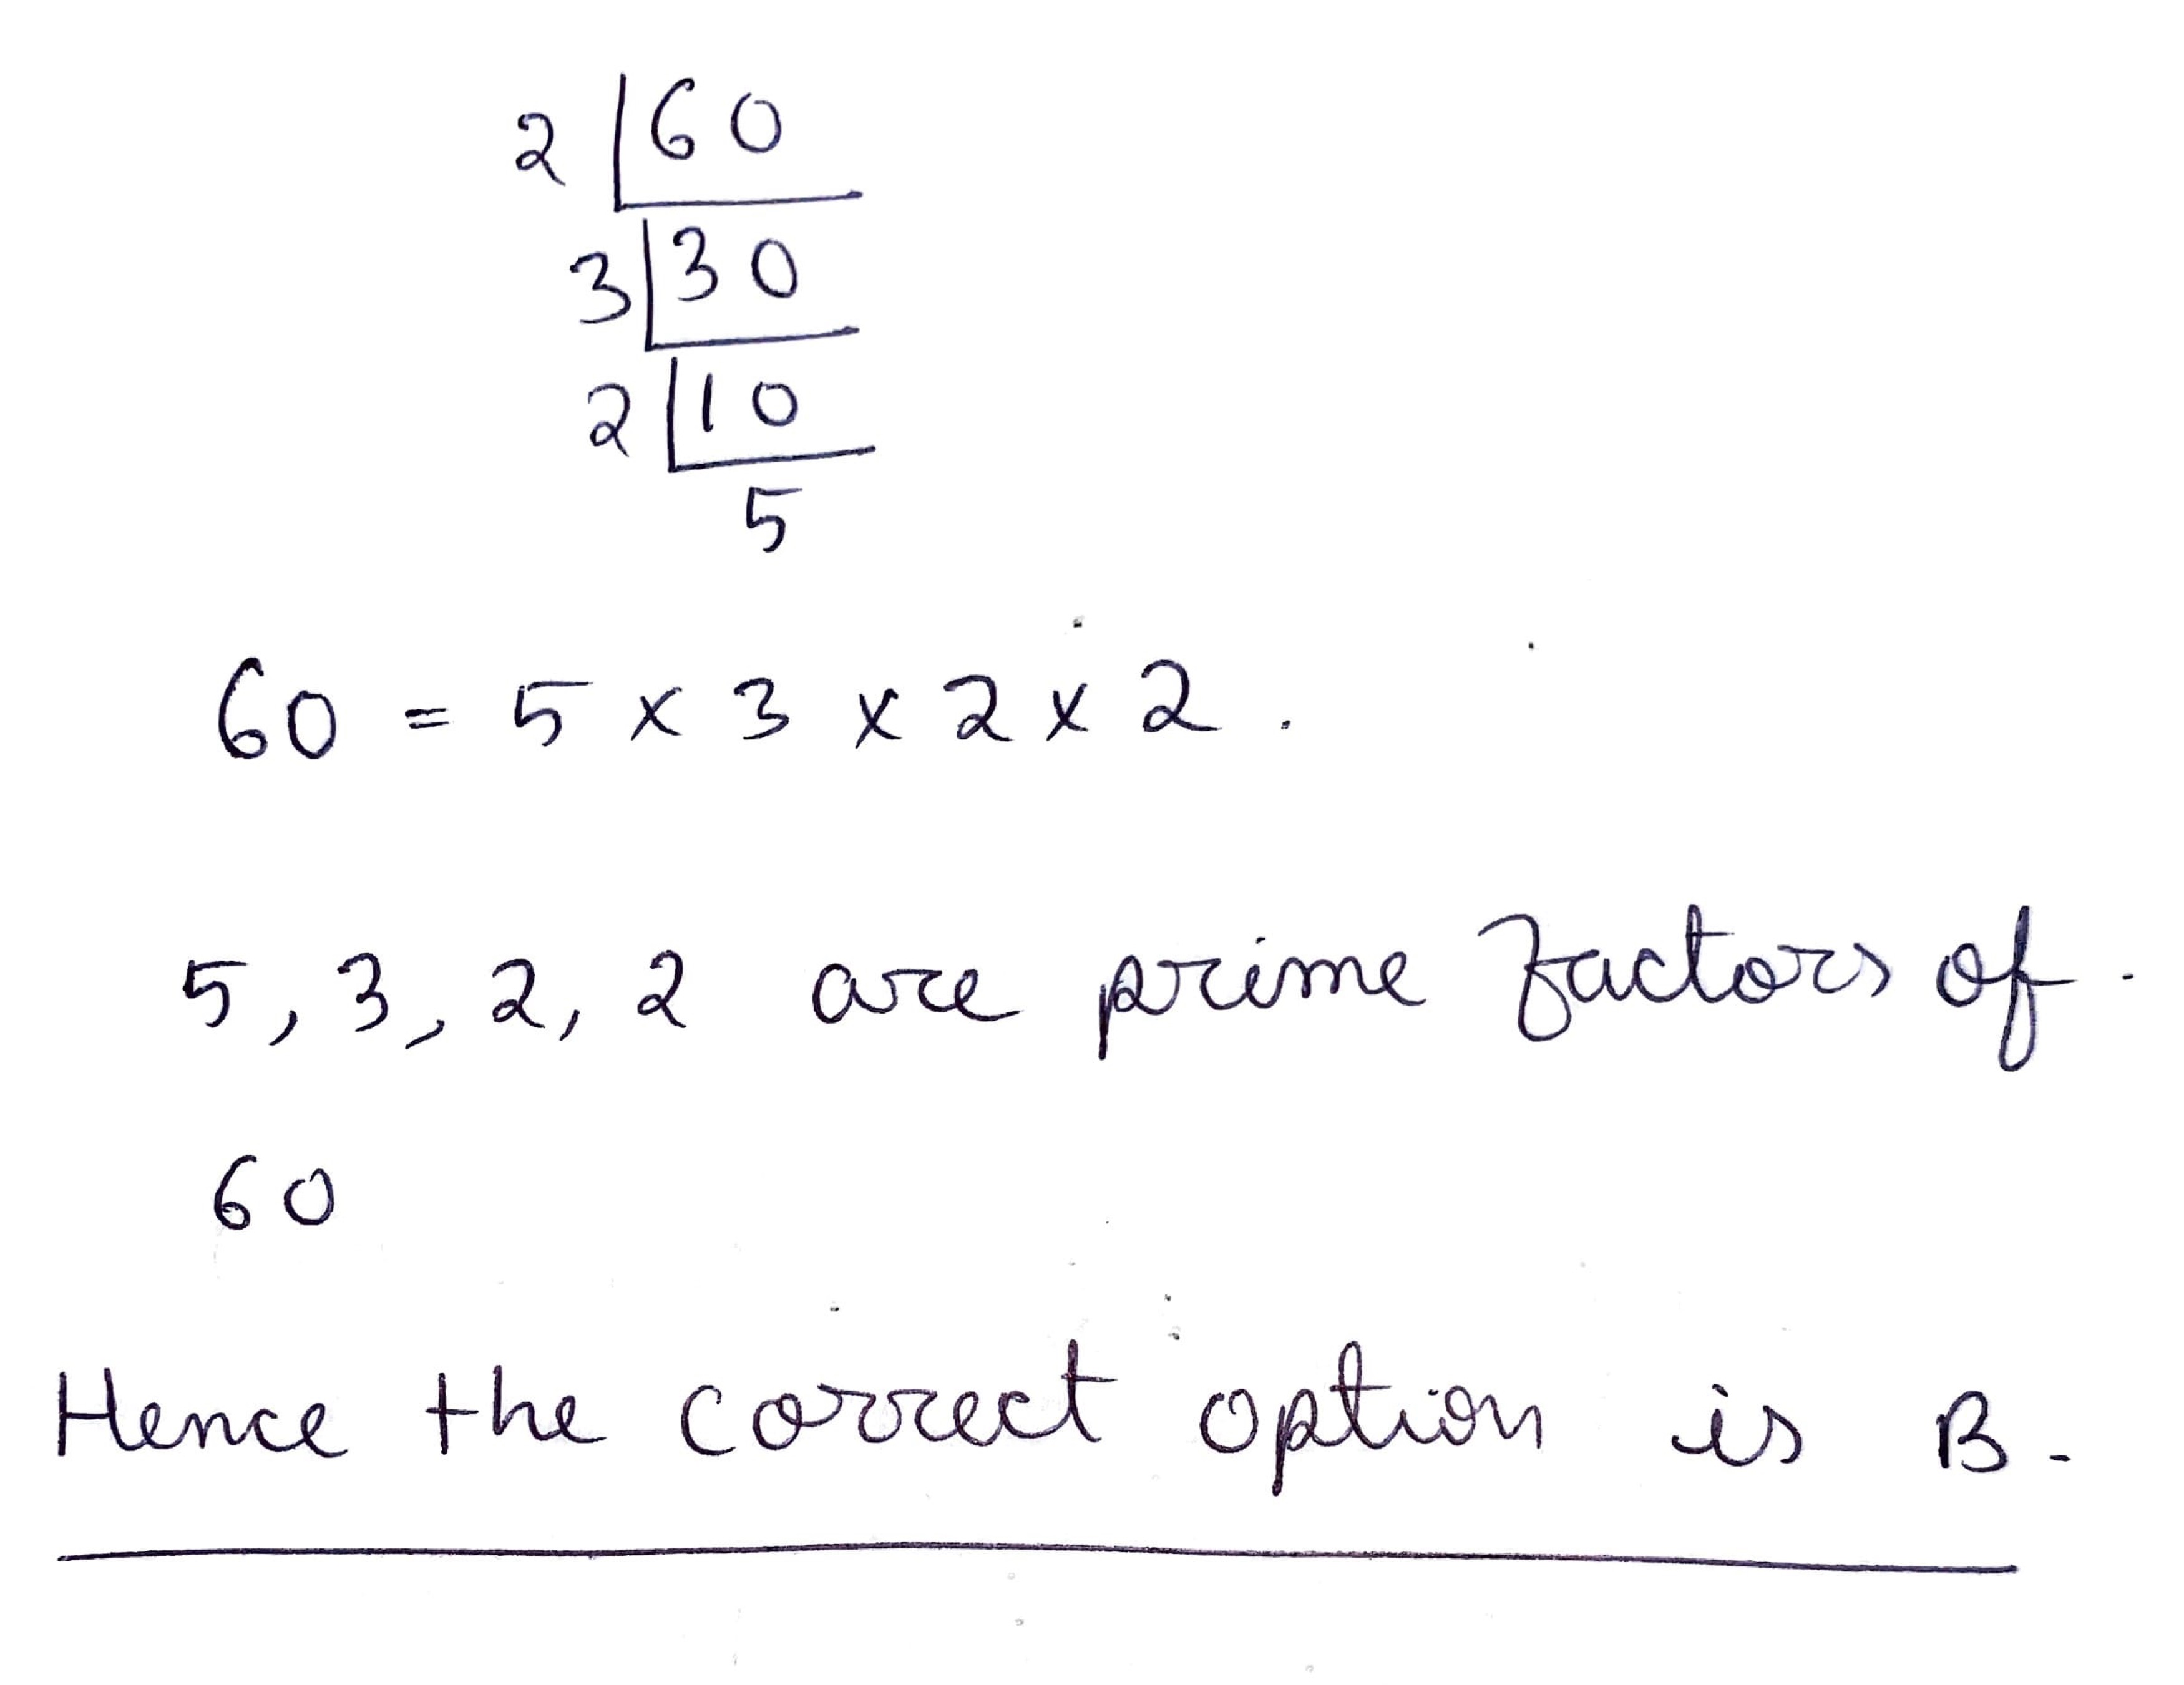 2 60
3 30
2 10
5
60 = 5 x 3 x 2 x 2 .
5 , 3 , 2 , 2 are prime factors of
60
Hence the correct option is B.